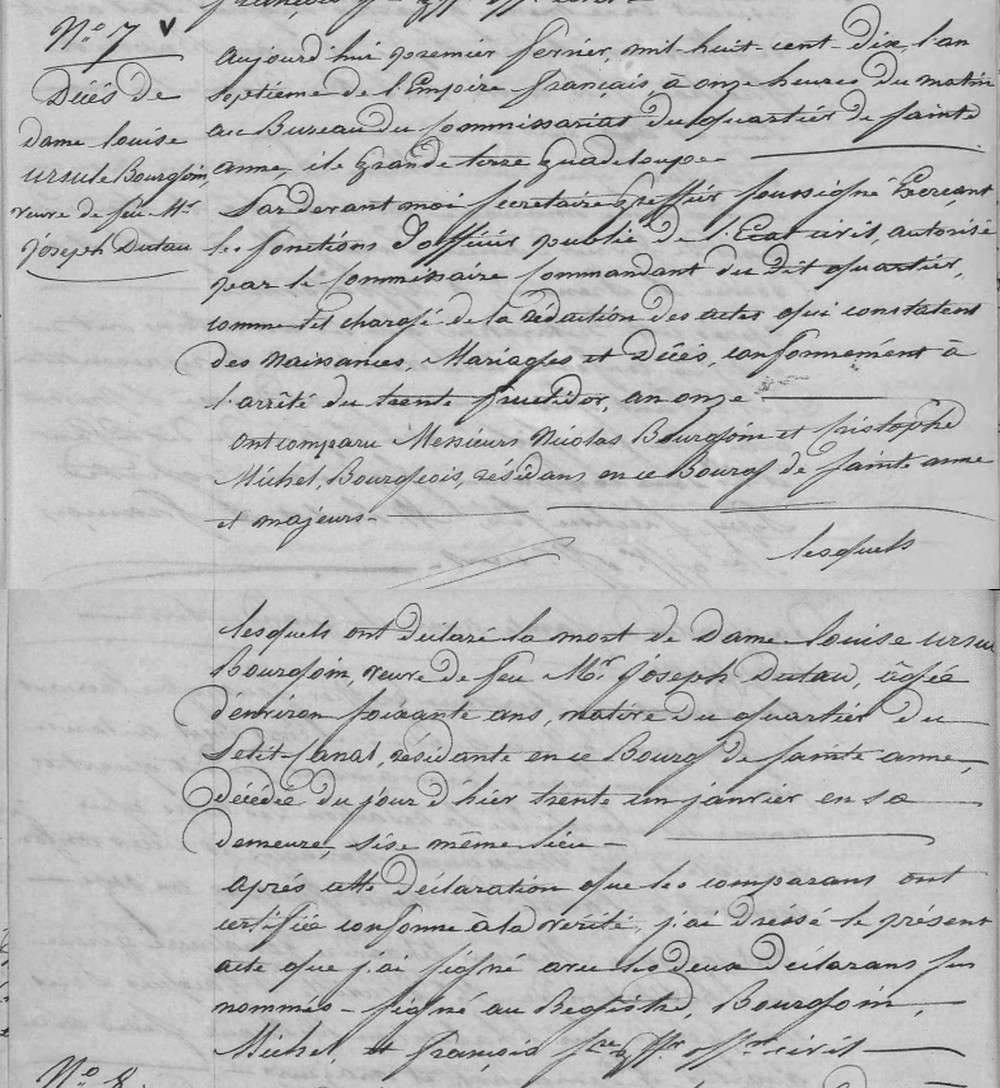 N.o 7
Décés de
Dame louise
ursule Bourgoin,
veuve de feu Mr
joseph Dutau
aujourd'hui premier fevrier, mil-huit-cent-dix, l'an
septième de l'Empire français, à onze heures du matin
au Bureau du Commissariat du quartier de Sainte
anne, ile Grande terre Guadeloupe
Pardevant moi Secretaire Greffier soussigné Exerçant
les fonctions d'officier public de l'Etat civil, autorisé
par le Commissaire Commandant du dit quartier,
comme tel chargé de la rédaction des actes qui constatent
des Naissances, Mariages et Décés, conformément à
l'arrêté du trente fructidor, an onze
Ont comparu Messieurs Nicolas Bourgoin et Cristophe
Michel, Bourgeois, résidans en ce Bourg de Sainte anne
et majeurs
lesquels
lesquels ont déclaré la mort de Dame louise ursu
Bourgoin, veuve de feu Mr. joseph Dutau, âgée
d'environ soixante ans, native du quartier du
Petit-Canal, résidante en ce Bourg de Sainte anne,
décédée du jour d'hier trente un janvier en sa
demeure, sise même lieu
Aprés cette déclaration que les comparans ont
certifiée conforme à la verité, j'ai dréssé le présent
acte que j'ai signé avec les deux déclarans sus
nommés - signé au Registre, Bourgoin,
Michel, et françois Sre gffr offr civil
N.o 8.